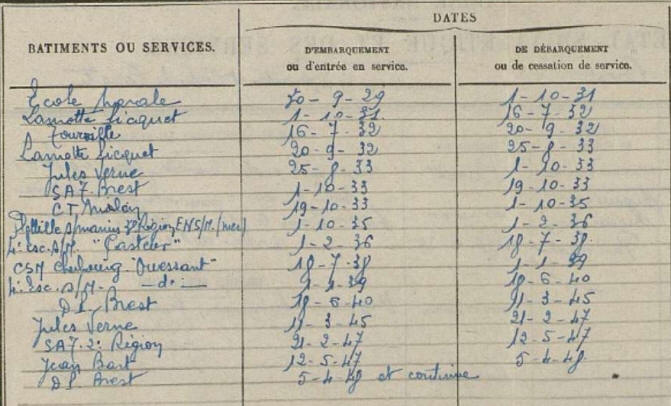 BATIMENTS OU SERVICES. DATES
D'EMBARQUEMENT ou d'entrée en service. DE DÉBARQUEMENT ou de cessation de service.
Ecole Navale 30-9-29 1-10-31
Lamotte Picquet 1-10-31 16-7-32
Tourville 16-7-32 20-9-32
Lamotte Picquet 20-9-32 25-8-33
Jules Verne 25-8-33 1-10-33
SAF. Brest 1-10-33 19-10-33
CT 19-10-33 1-10-35
S/marins Région 1-10-35 1-2-36
4e esc. S/M. 1-2-36 18-7-38
CSM Cherbourg "Ouessant" 18-7-38 1-1-39
4e esc. S/M. -do- 1-1-39 18-6-40
D.P. Brest 18-6-40 21-3-45
Jules Verne 21-3-45 21-2-47
SAF. 2e Région 21-2-47 12-5-47
Jean Bart 12-5-47 5-4-48
D.P. Brest 5-4-48 et continue